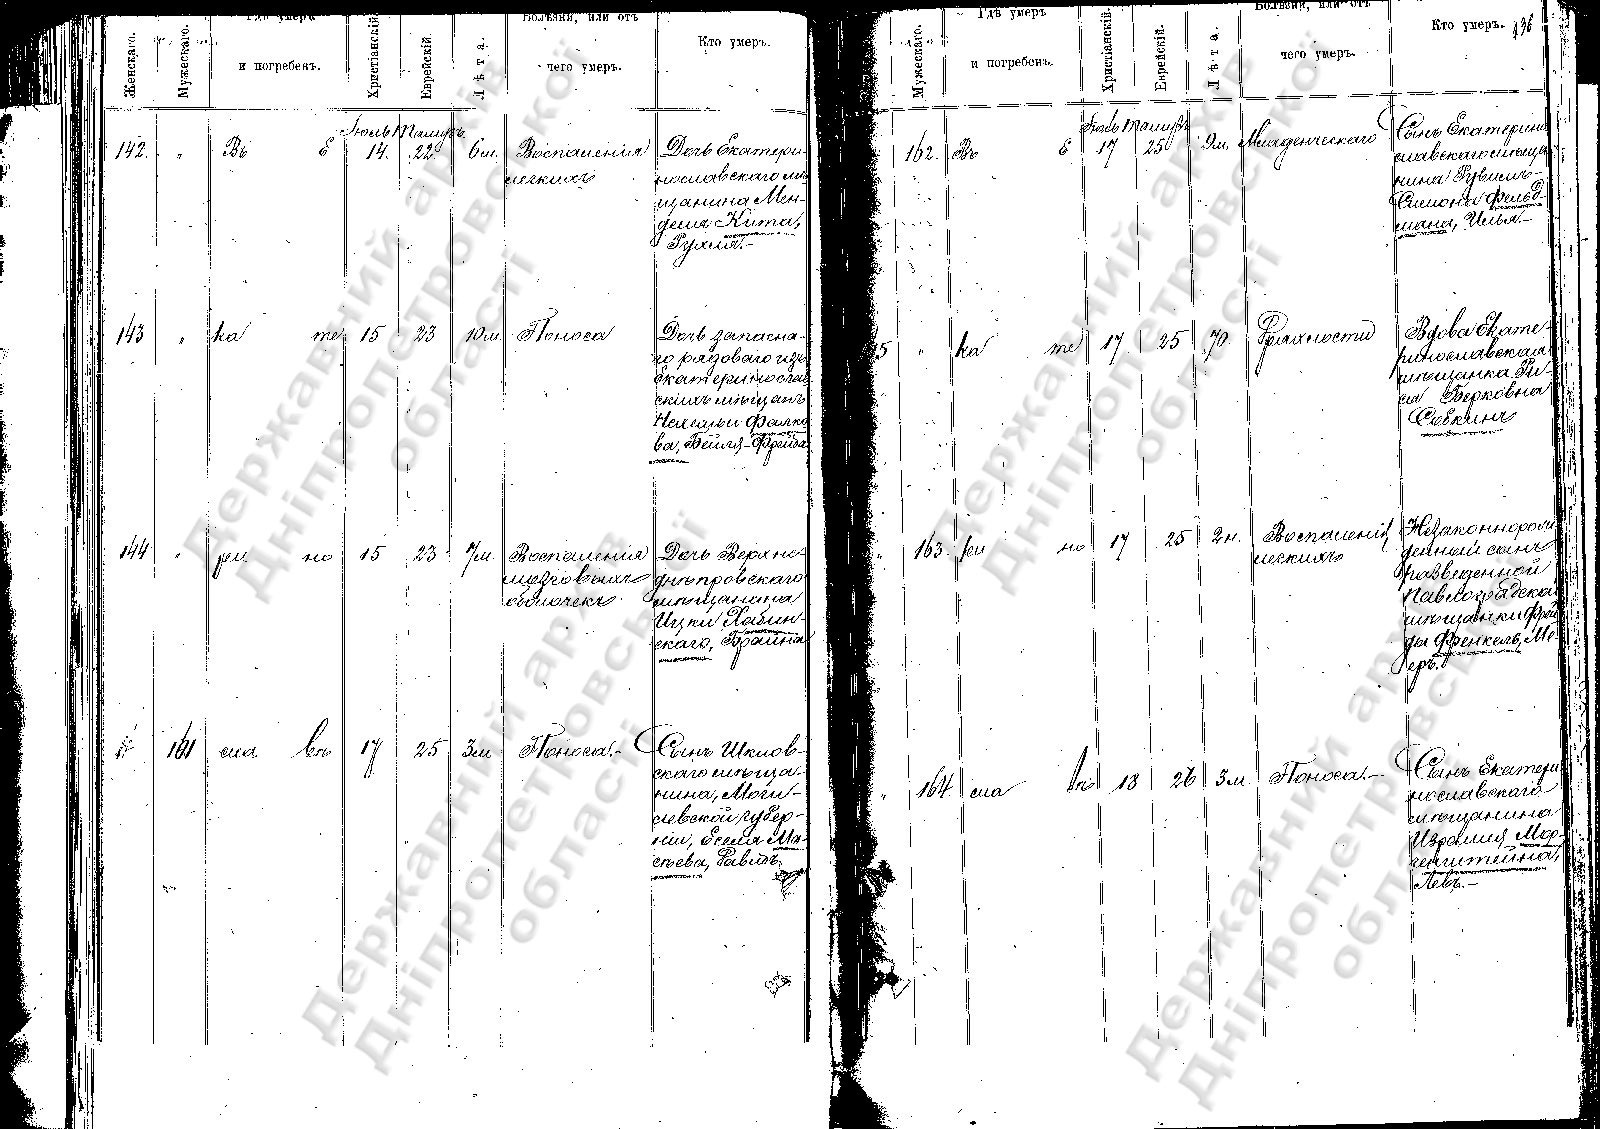 Женскаго.
Мужескаго.
Гдѣ умеръ
и погребенъ.
Христіанскій.
Еврейскій.
Лѣта.
Болѣзни, или отъ
чего умеръ.
Кто умеръ.
Іюль Тамузъ
142. " Въ Е 14. 22. 6 м. Воспаленія
легкихъ
Дочь Екатери-
нославскаго мѣ-
щанина Мен-
деля Кита,
Рухля.-
143 " ка те 15 23 10 м. Поноса
Дочь запасна-
го рядоваго изъ
Екатеринослав-
скихъ мѣщанъ
Фалко-
ва, Бейля-Фрейда
144 " ри но 15 23 7 м. Воспаленія
мозговыхъ
оболочекъ
Дочь Верхно-
днѣпровскаго
мѣщанина
Ицки Хабин-
скаго, Браина
161 сла вѣ 17 25 3 м. Поноса.-
Сынъ Шклов-
скаго мѣща-
нина, Моги-
левской губер-
ніи,
Давидъ.
Мужескаго.
Гдѣ умеръ
и погребенъ.
Христіанскій.
Еврейскій.
Лѣта.
Болѣзни, или отъ
чего умеръ.
Кто умеръ.
136
Іюль Тамузъ
162. Въ Е 17 25 9 м. Младенческаго
Сынъ Екатерино
славскаго мѣща
нина Рувимъ-
Симона Фельд-
мана, Илья.-
" ка те 17. 25 70. Дряхности
Вдова Екате-
ринославская
мѣщанка Ри-
ся Берковна
Сивкинъ
" 163. ри но 17 25 2 н. Воспаленія
легкихъ
Незаконнорож
денный сынъ
разведенной
Павлоградской
мѣщанки Фрей
ды Френкель, Ме-
еръ.
" 164. сла вѣ 18 26 3 м. Поноса.-
Сынъ Екатери
нославскаго
мѣщанина
Израиля Мор-
генштейна,
Левъ.-
Державний архів
Дніпропетровської
області
Державний архів
Дніпропетровської
області
Державний архів
Дніпропетровської
області
Державний архів
Дніпропетровської
області